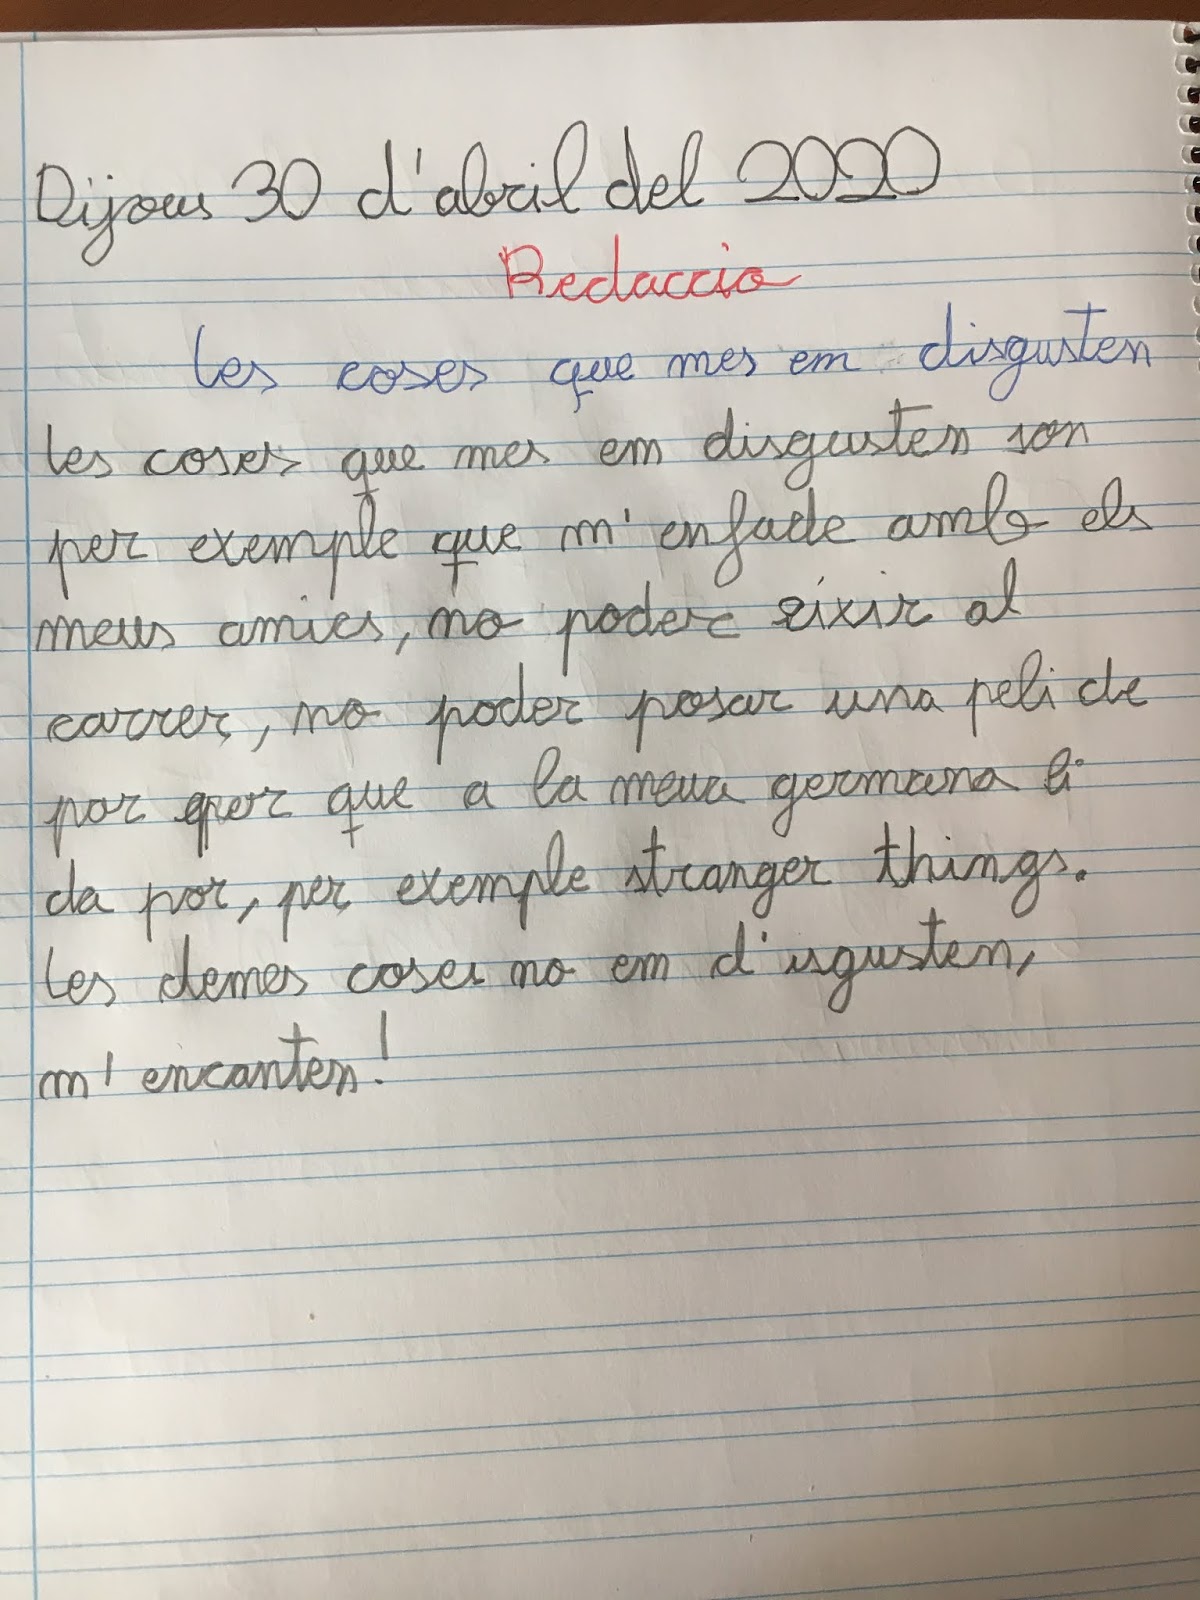 Dijous 30 d'abril del 2020
Redaccio
Les coses que mes em disgusten
les coses que mes em disgusten son
per exemple que m'enfade amb els
meus amics, no poder eixir al
carrer, no poder posar una peli de
por per que a la meua germana li
da por, per exemple stranger things.
Les demes coses no em disgusten,
m'encanten!